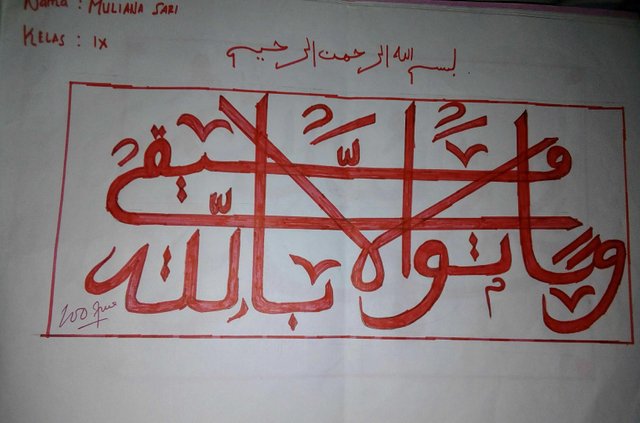 Nama : MULIANA SARI
KELAS : IX
بسم الله الرحمن الرحيم
وما توفيقي الا بالله
100